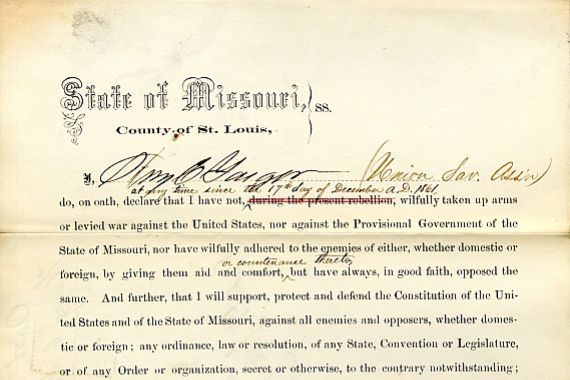 State of Missouri, } ss.
County of St. Louis,
I, Wm C Yaeger (Union Sav. Ass'n)
at any time since the 17th day of December A.D. 1861,
do, on oath, declare that I have not, during the present rebellion, wilfully taken up arms
or levied war against the United States, nor against the Provisional Government of the
State of Missouri, nor have wilfully adhered to the enemies of either, whether domestic or
or countenance thereto
foreign, by giving them aid and comfort, but have always, in good faith, opposed the
same. And further, that I will support, protect and defend the Constitution of the Uni-
ted States and of the State of Missouri, against all enemies and opposers, whether domes-
tic or foreign; any ordinance, law or resolution, of any State, Convention or Legislature,
or of any Order or organization, secret or otherwise, to the contrary notwithstanding;